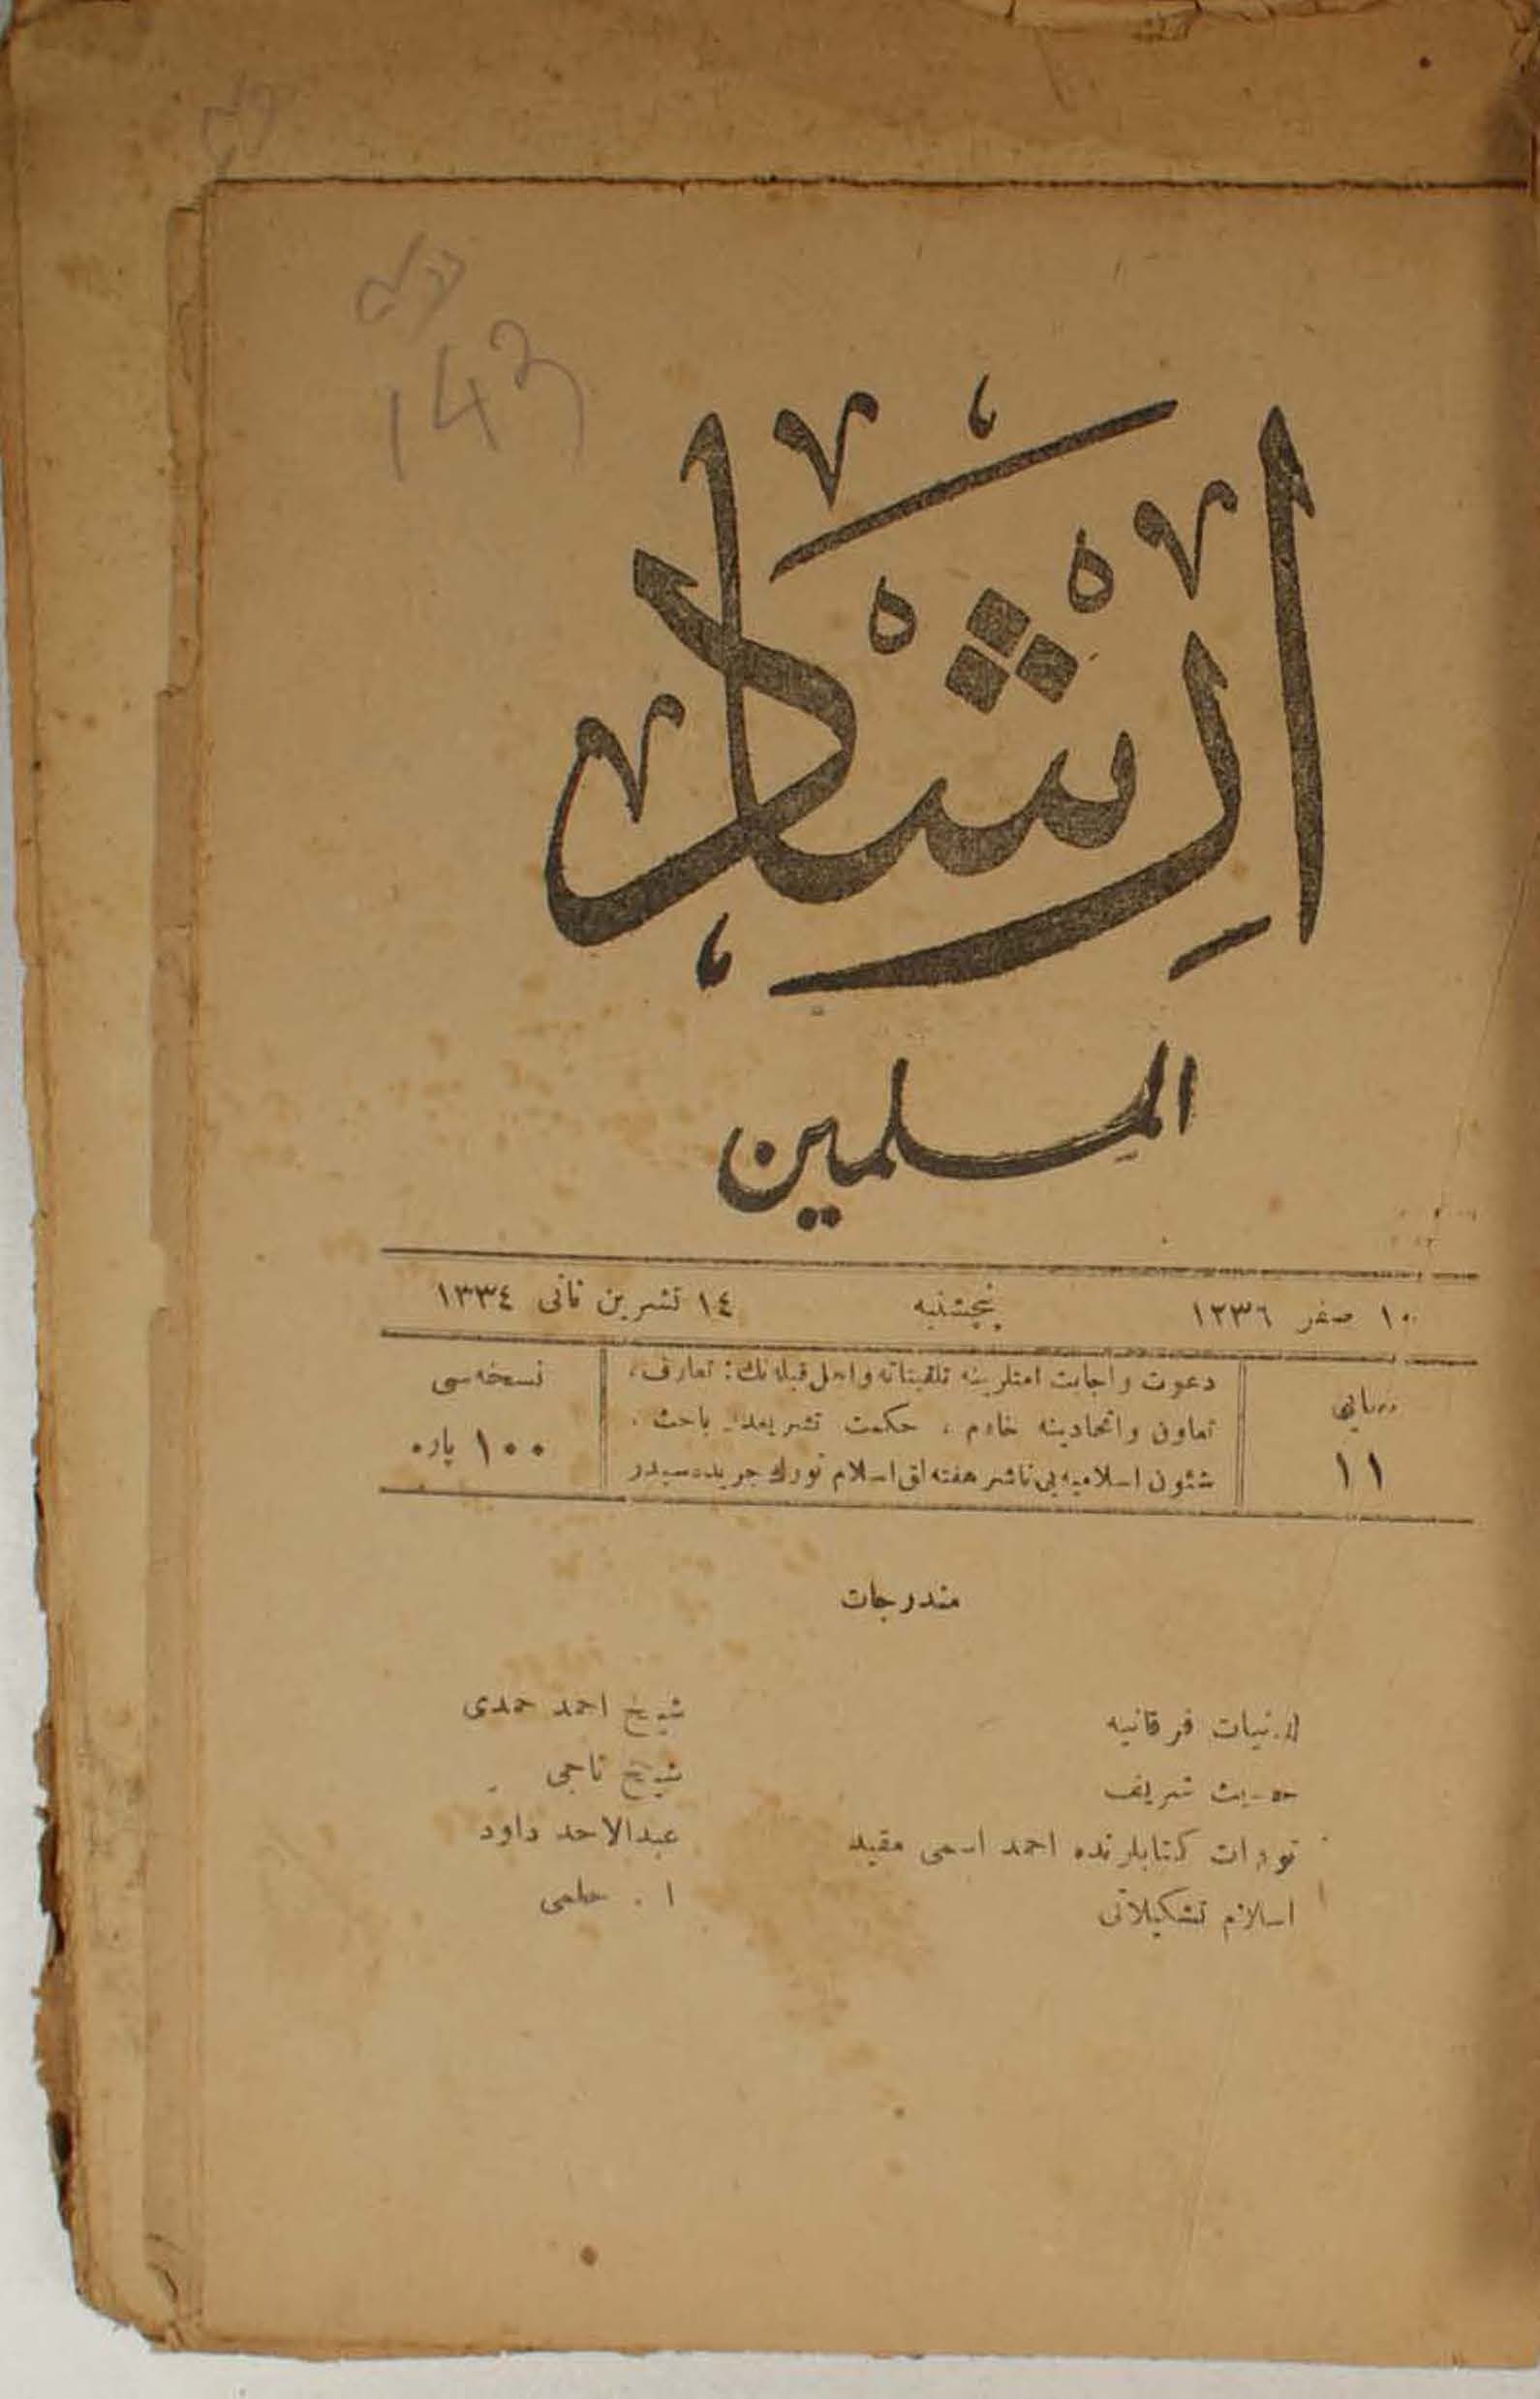 143
ارشاد
المسلمين
١٠ صفر ١٣٣٦ پنجشنبه ١٤ تشرين ثانى ١٣٣٤
صايى
١١
دعوت و اجابت امتلرينه تلقيناته و اهل قبله نك : تعارف ،
تعاون و اتحادينه خادم ، حكمت تشريعدن باحث ،
شئون اسلاميه يى ناشر هفته لق اسلام تورك جريده سيدر
نسخه سى
١٠٠ پاره
مندرجات
لدنيات فرقانيه شيخ احمد حمدى
حديث شريف شيخ ناجى
تورات كتابلرنده احمد اسمى مقيد عبدالاحد داود
اسلام تشكيلاتى ا . حلمى